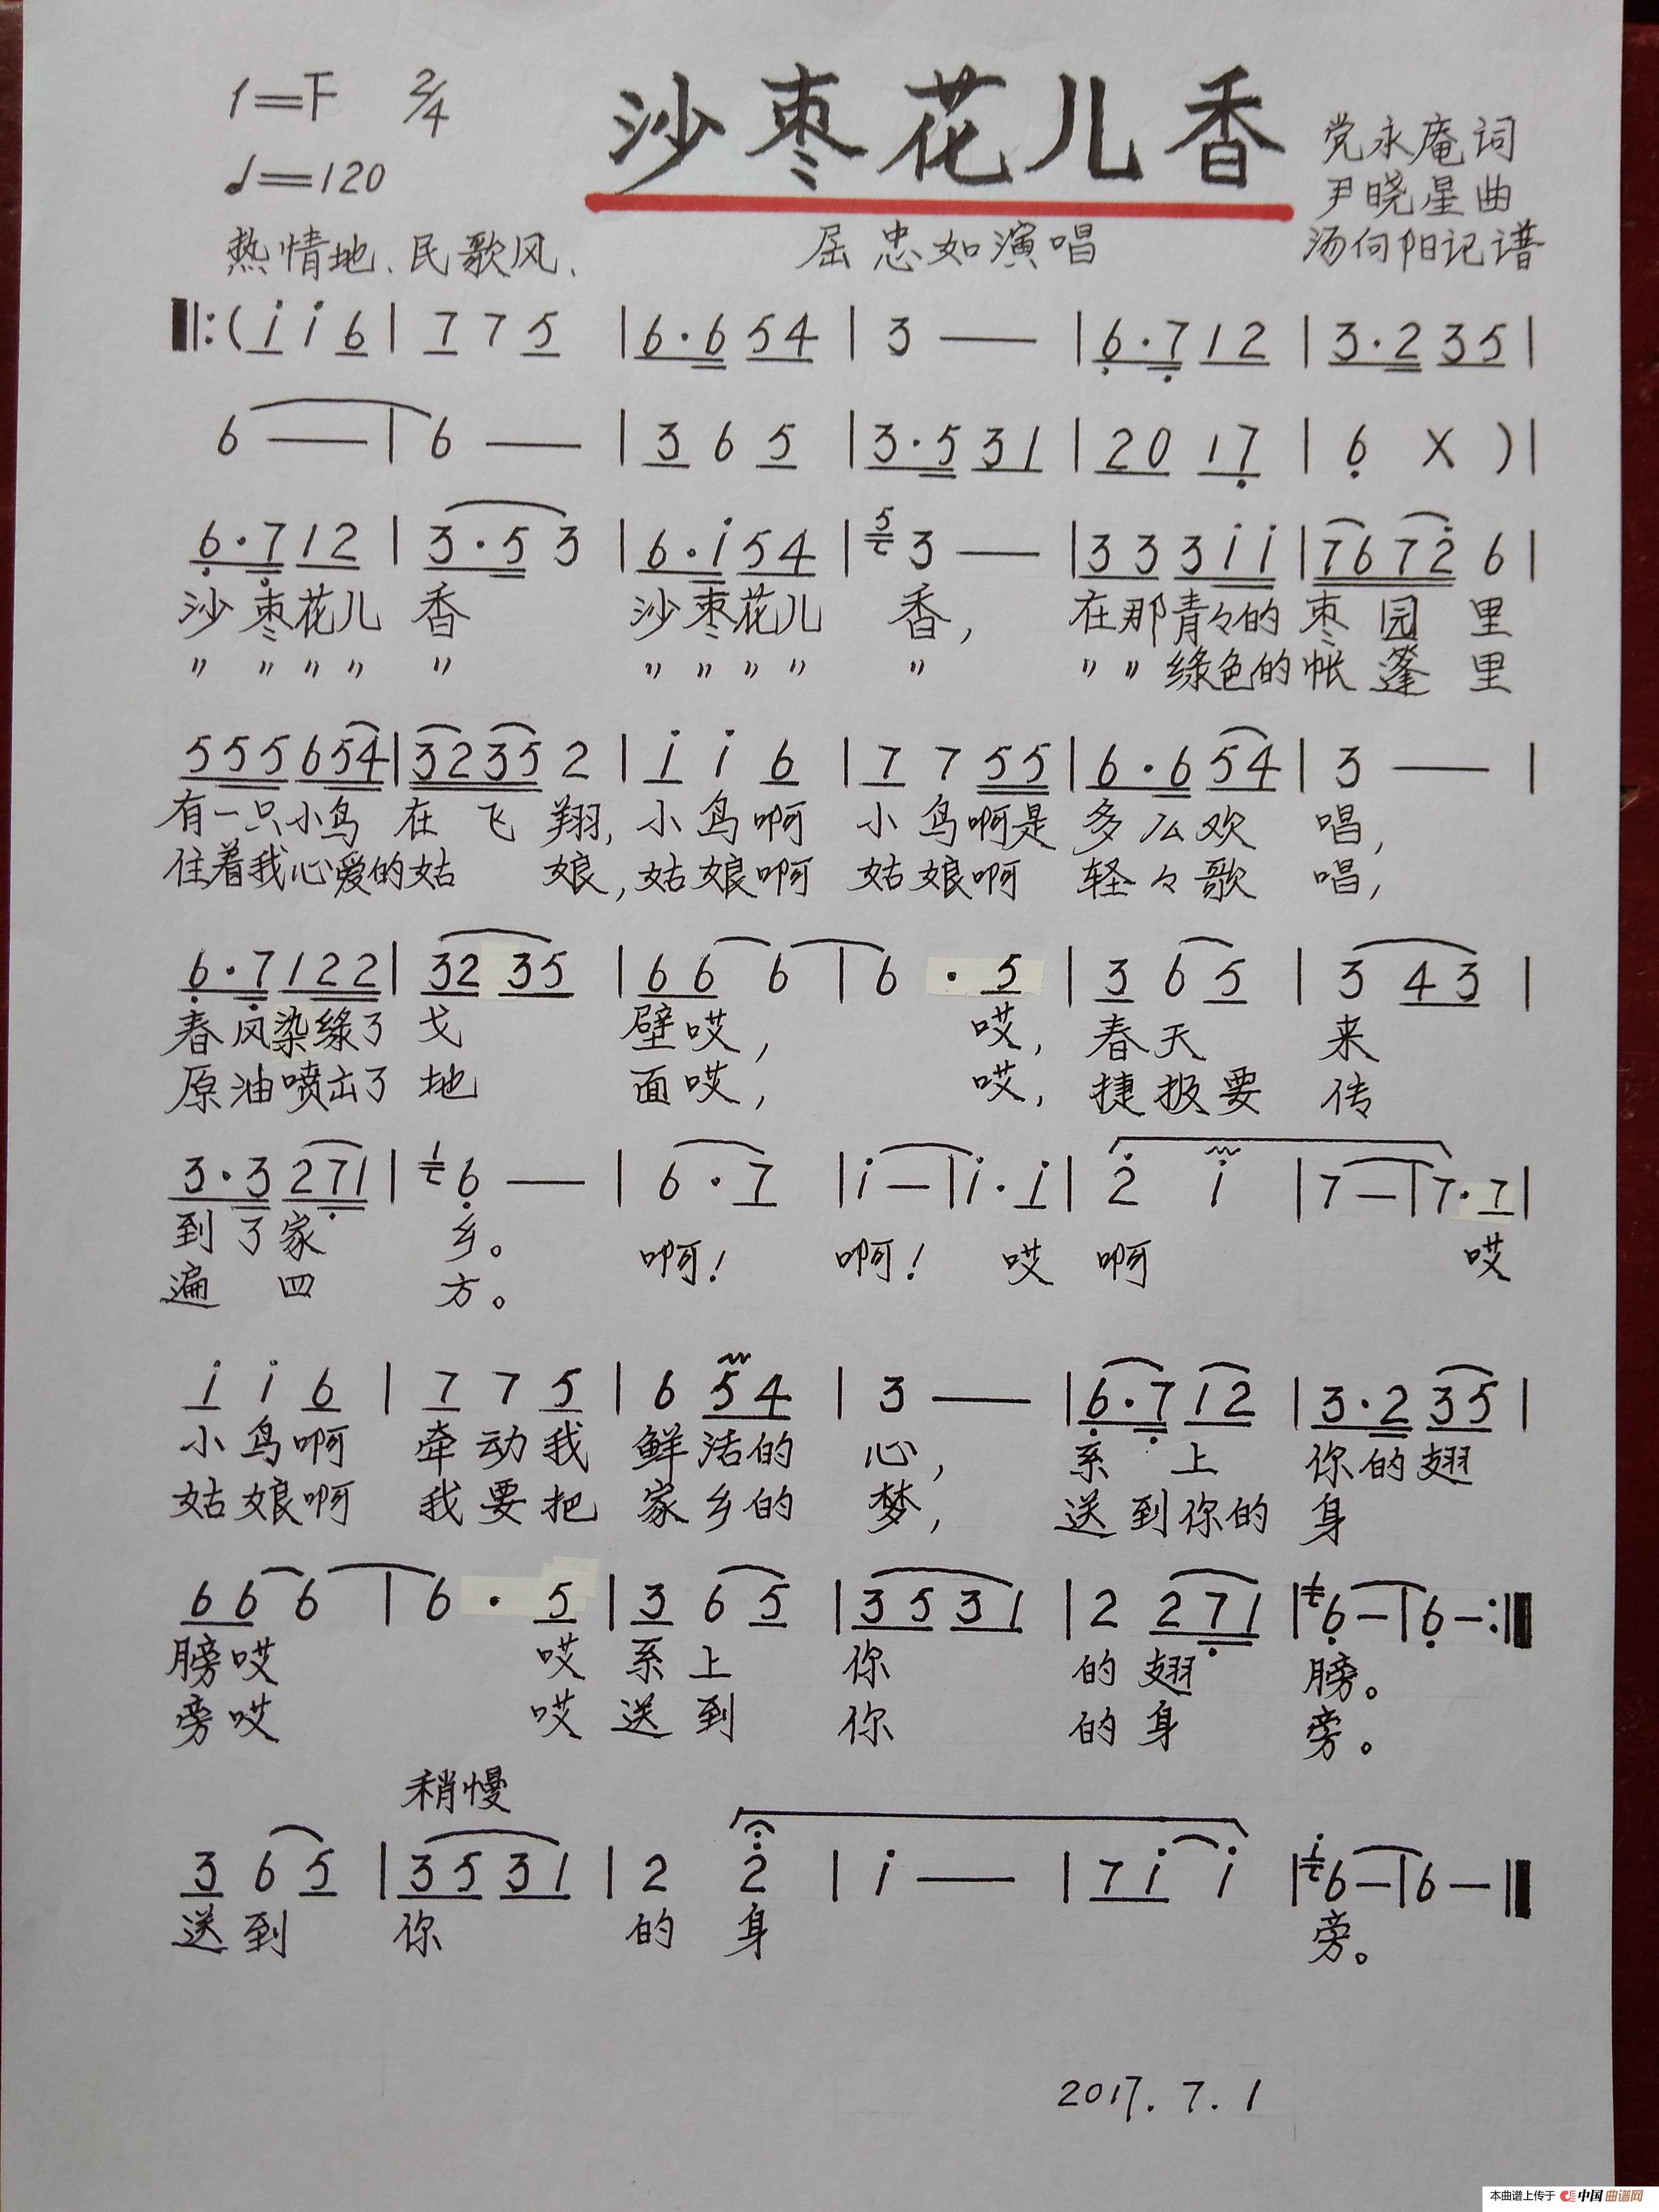 1=F 2/4 沙枣花儿香 党永庵词
♩=120 尹晓星曲
热情地、民歌风、 屈忠如演唱 汤向阳记谱
‖:(i i 6 | 7 7 5 | 6·6 54 | 3 — | 6·7 12 | 3·2 35 |
6 — | 6 — | 3 6 5 | 3·5 31 | 20 17 | 6 X )|
6·7 12 | 3·5 3 | 6·i 54 | 5 3 — | 33 3ii | 7672 6 |
沙枣花儿 香 沙枣花儿 香, 在那青々的枣园里
〃〃〃〃 〃 〃〃〃〃 〃 〃〃绿色的帐篷里
555 654 | 3235 2 | i i 6 | 7 7 55 | 6·6 54 | 3 — |
有一只小鸟 在飞翔, 小鸟啊 小鸟啊是 多么欢 唱,
住着我心爱的姑 娘, 姑娘啊 姑娘啊 轻々歌 唱,
6·7 122 | 32 35 | 66 6 | 6 · 5 | 3 6 5 | 3 43 |
春风染绿了 戈 壁哎, 哎, 春天 来
原油喷出了 地 面哎, 哎, 捷报要 传
3·3 271 | 1 6 — | 6 · 7 | i — | i · i | 2 i | 7 — | 7·7 |
到了家 乡。 啊! 啊! 哎 啊 哎
遍 四 方。
i i 6 | 7 7 5 | 6 54 | 3 — | 6·7 12 | 3·2 35 |
小鸟啊 牵动我 鲜活的 心, 系 上 你的翅
姑娘啊 我要把 家乡的 梦, 送到你的 身
66 6 | 6 · 5 | 3 6 5 | 35 31 | 2 271 | 1 6 — | 6 — :‖
膀哎 哎 系上 你 的翅 膀。
旁哎 哎 送到 你 的身 旁。
稍慢
3 6 5 | 35 31 | 2 2 | i — | 7i i | i 6 — | 6 — ‖
送到 你 的 身 旁。
2017.7.1
本曲谱上传于 中国曲谱网